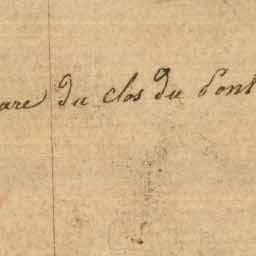 are du clos du Pont